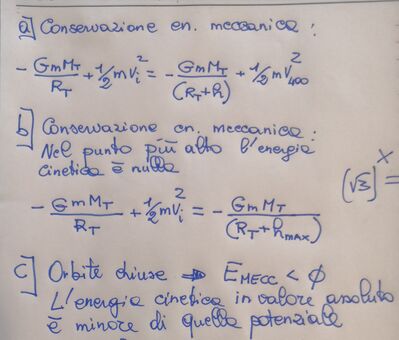 a] Conservazione en. meccanica :
- GmM_T/R_T + 1/2 mV_i^2 = - GmM_T/(R_T+h) + 1/2 mV_400^2
b] Conservazione en. meccanica :
Nel punto più alto l'energia
cinetica è nulla
- GmM_T/R_T + 1/2 mV_i^2 = - GmM_T/(R_T+h_MAX)
(√3)^x =
c] Orbite chiuse → E_MECC < ∅
L'energia cinetica in valore assoluto
è minore di quella potenziale